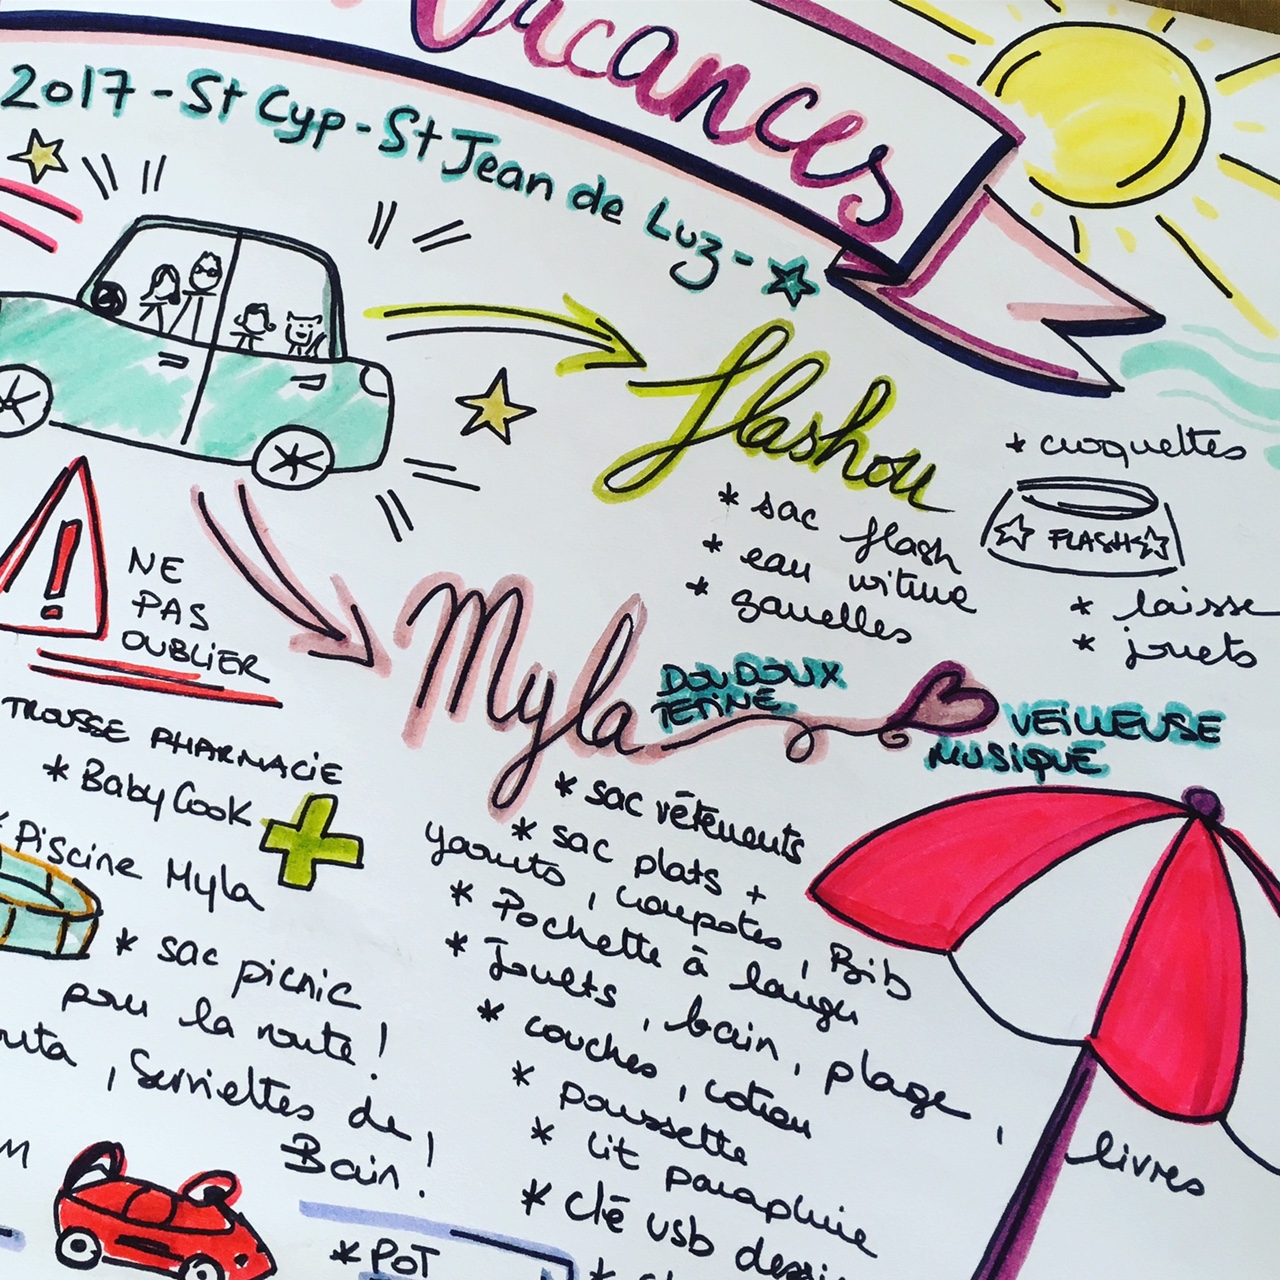 Vacances
2017 - St Cyp - St Jean de Luz -
Flashou
* croquettes
* sac flash
* eau vitine
* gamelles
FLASH
* laisse
* jouets
NE
PAS
OUBLIER
Myla
DOUDOUX
TETINE
VEILLEUSE
MUSIQUE
TROUSSE PHARMACIE
* BabyCook
* Piscine Myla
* sac picnic
pour la route !
, Serviettes de
Bain !
* sac vêtements
* sac plats +
yaourts, compotes, Bib
* Pochette à langer
* Jouets, bain, plage, livres
* couches, coton
* poussette
* lit parapluie
* clé usb
* POT